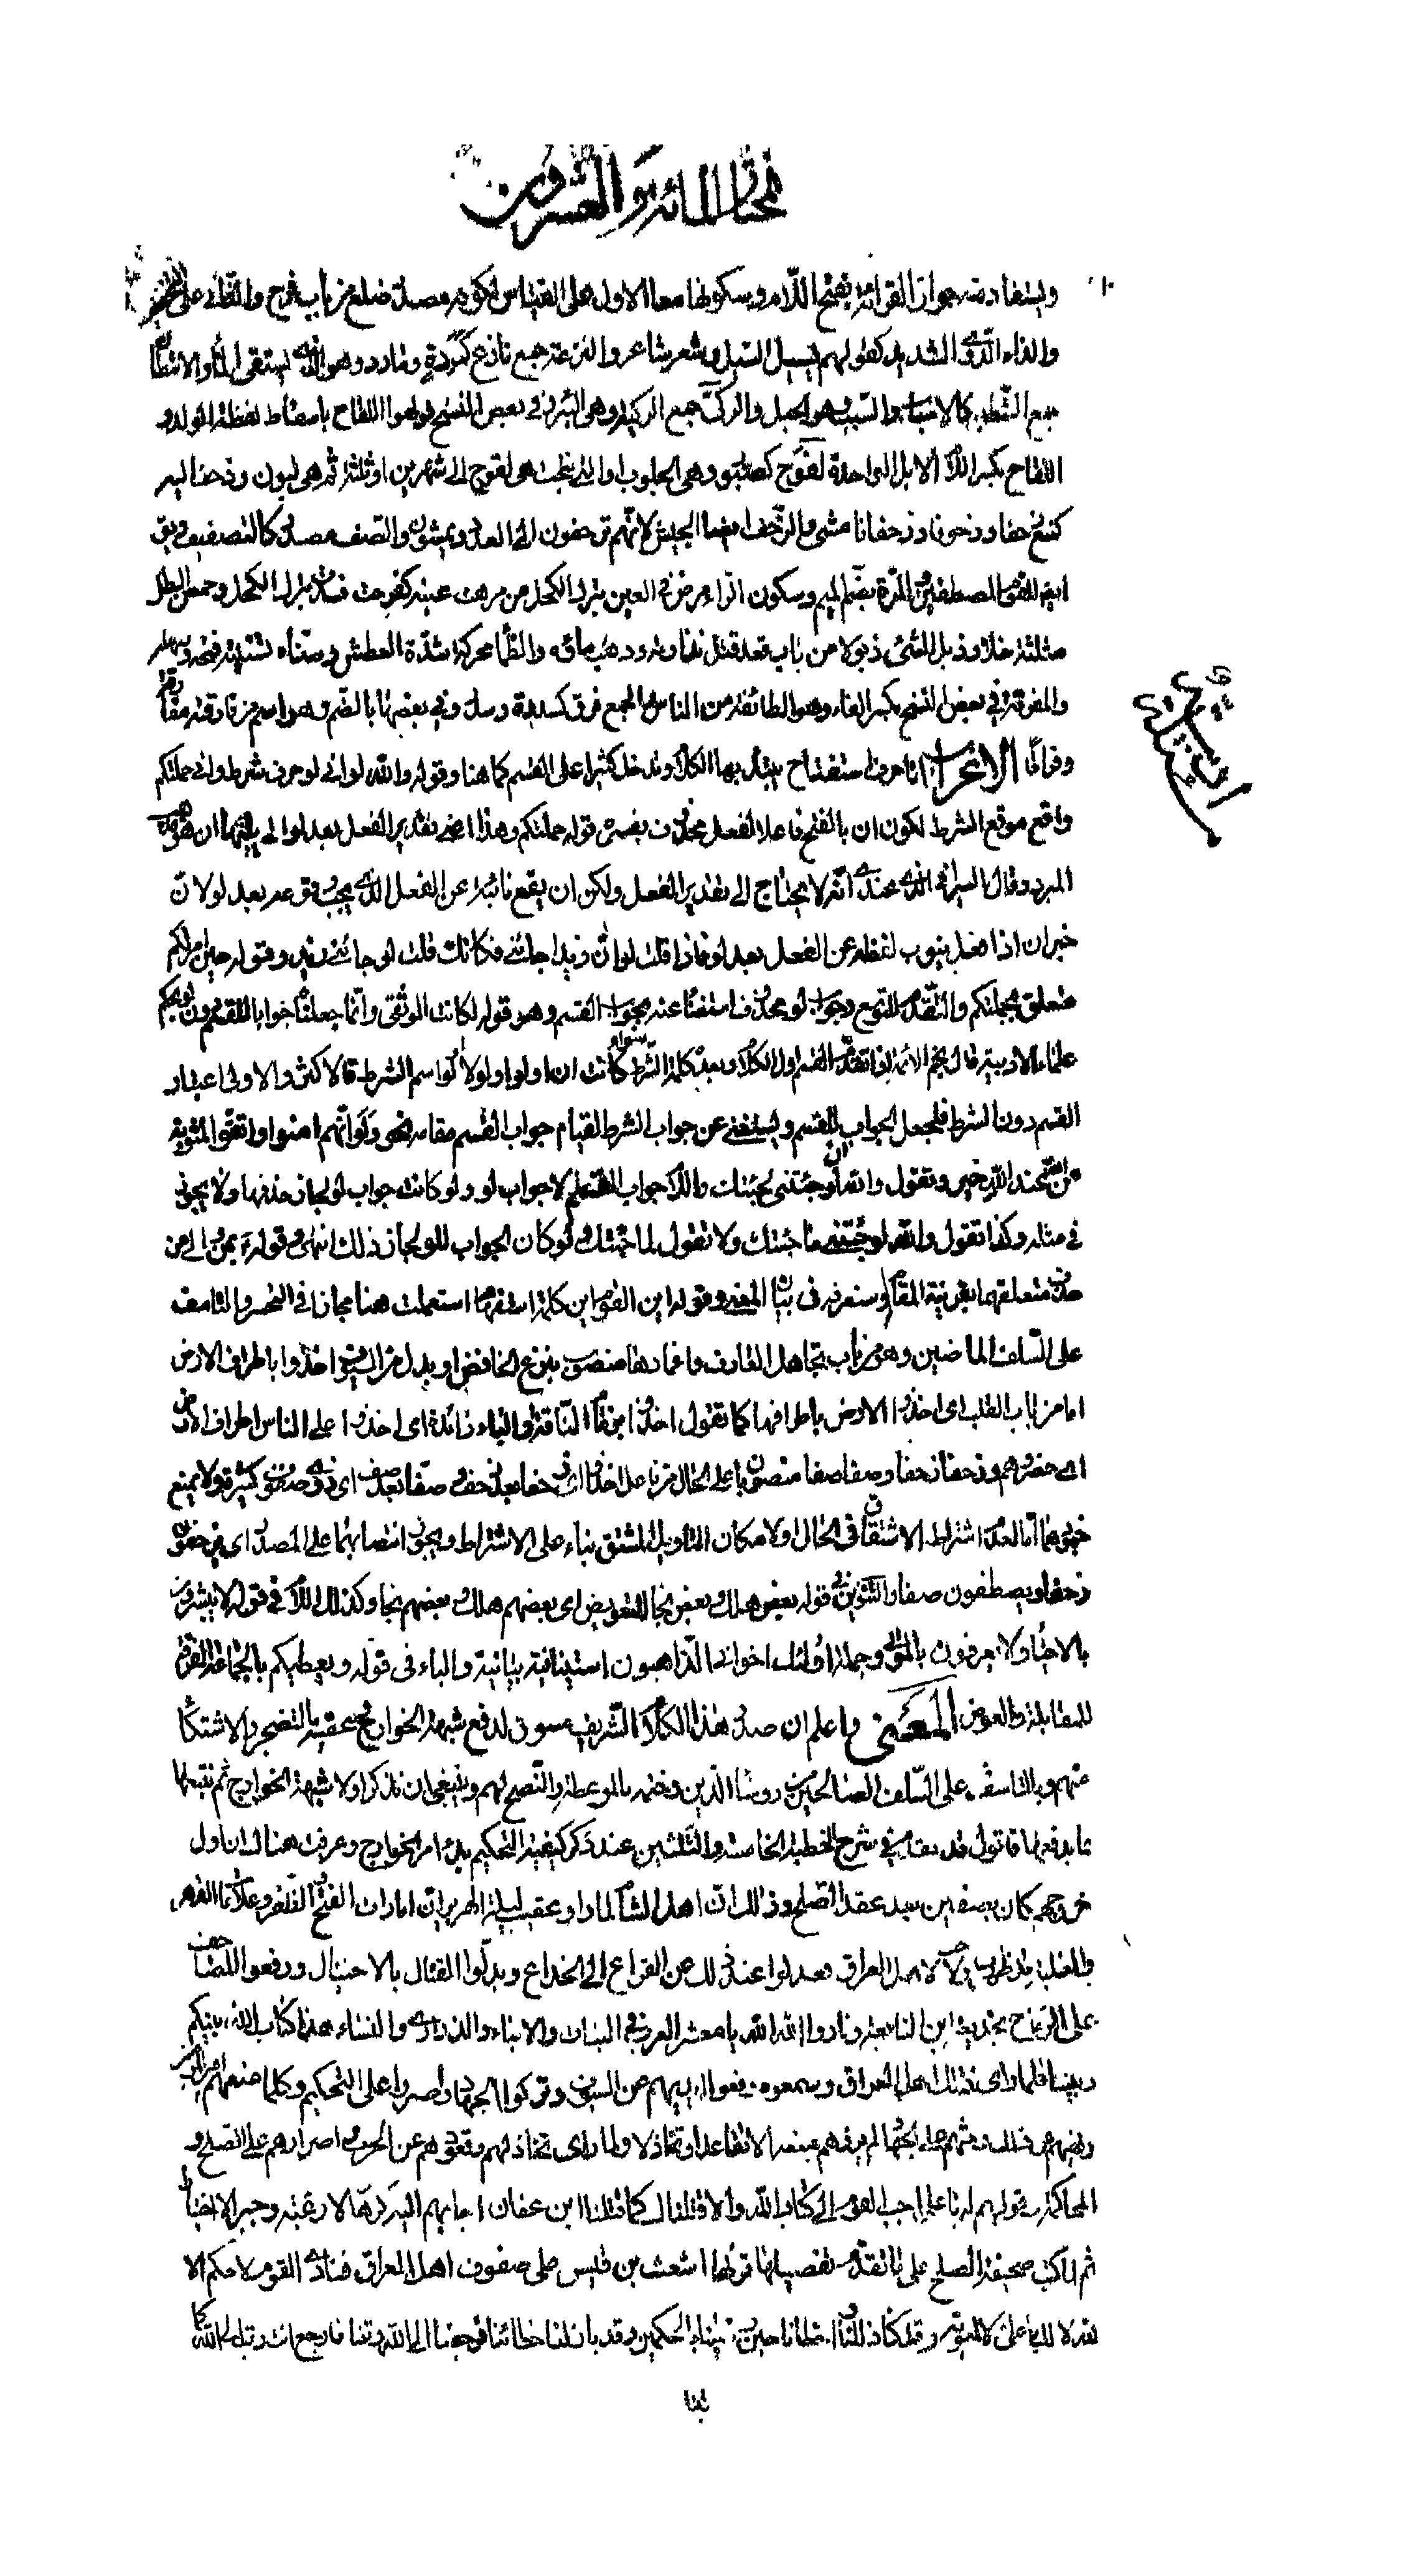 المختار المائة والعشرون
ويستفاد منه جواز القرائة بفتح اللام وسكونها معا الاول على القياس لكونه مصدر ضلع من باب فرح والثاني على
والداء الدوى الشديد كقولهم ليل وشعر شاعر والنزعة جمع نازع ككردة ومارد وهو الذي يستقى الماء والاشطان
جمع الشطن كالاسباب والسبب وهو الحبل والركي جمع الركية وهى البئر وفي بعض النسخ ولهوا اللقاح باسقاط لفظة اولادها
اللقاح بكسر اللام الابل الواحدة لقوح كصبور وهى الحلوب او التي نتجت هى لقوح الى شهرين او ثلثة ثم هى لبون وزحف اليه
كمنع زحفا وزحوفا وزحفانا مشى والزحف ايضا الجيش لانهم يزحفون الى العدو ويمشون والصف مصدر كالتصفيف ويق
ايضا للقوم المصطفين والمره بضم الميم وسكون الراء مرض في العين بترك الكحل من مرهت عينه كفرحت فسدت بترك الكحل وخمص البطن
مثلثة خلا وذبل الشىء ذبولا من باب قعد قل ماؤه وذهب مائه والظمأ محركة شدة العطش وسناه تسنية فتحه وسهله
والفرقة في بعض النسخ بكسر الفاء وهو الطائفة من الناس والجمع فرق كسدرة وسدر وفي بعضها بالضم وهو اسم من فارقته مفارقة
وفراقا الاعراب اما حرف استفتاح يبتدء بها الكلام وتدخل كثيرا على القسم كما هنا وقوله والله لو انى لو حرف شرط وانى حملتكم
واقع موقع الشرط لكون ان بالفتح فاعلا لفعل محذوف يفسره قوله حملتكم وهذا اعنى تقدير الفعل بعد لو التي يليها ان هو
المبرد وقال السيرافى الذي عندى انه لا يحتاج الى تقدير الفعل ولكن ان يقع نائبة عن الفعل الذي يجب وقوعه بعد لو لان
خبر ان اذا فعل ينوب لفظه عن الفعل بعد لو فاذا قلت لو ان زيدا جائنى فكانك قلت لو جائنى زيد وقوله حين امرتكم
متعلق بحملتكم والتقديم للتوسع وجواب لو محذوف استغناء عنه بجواب القسم وهو قوله لكانت الوثقى وانما جعلنا جوابا للقسم دون لو بحكم
علماء الادبية قال نجم الائمة اذا تقدم القسم اول الكلام وبعده كلمة الشرط سواء كانت ان او لو او لولا او اسم الشرط فالاكثر والاولى اعتبار
القسم دون الشرط فيجعل الجواب للقسم ويستغنى عن جواب الشرط لقيام جواب القسم مقامه نحو ولو انهم امنوا واتقوا لمثوبة
من عند الله خير وتقول والله ان لو جئتنى لجئتك واللام جواب القسم لا جواب لو ولو كانت جواب لو لجاز حذفها ولا يجوز
في مثله وكذا تقول والله لو جئتنى ما جئتك ولا تقول لما جئتك ولو كان الجواب للو لجاز ذلك انتهى وقوله بمن والى من
حذف متعلقهما بقرينة المقام وستعرفه في بيان المعنى وقوله اين القوم اين كلمة استفهام استعملت هنا مجازا في التحسر والتاسف
على السلف الماضين وهو من باب تجاهل العارف واغمادها منصوب بنزع الخافض او بدل من السيوف واخذوا باطراف الارض
اما من باب القلب اى اخذوا الارض باطرافها كما تقول اخذوا بزمام الناقة او الباء زائدة اى اخذوا على الناس اطراف الارض
اى حصروهم وزحفا زحفا وصفا صفا منصوبان على الحال من فاعل اخذوا اى زحفا بعد زحف وصفا بعد صف اى ذوى صفوف كثيرة ولا يمنع
جمودهما اما لعدم اشتراط الاشتقاق في الحال او لامكان التاويل بالمشتق بناء على الاشتراط ويجوز انتصابهما على المصدر اى يزحفون
زحفا ويصطفون صفا والتنوين في قوله بعض هلك وبعض نجا للتعويض اى بعضهم هلك وبعضهم نجا وكذلك اللام في قوله لا يبشرون
بالاحياء ولا يعرفون بالموتى وجملة اولئك اخوانى الذاهبون استينافية بيانية والباء في قوله ويعطيكم بالجماعة الفرقة
للمقابلة والعوض المعنى واعلم ان صدر هذا الكلام الشريف مسوق لدفع شبهة الخوارج وعقبه بالتضجر والاشتكاء
منهم وبالتاسف على السلف الصالحين من رؤساء الدين وختمه بالموعظة والنصح لهم وينبغى ان نذكر اولا شبهة الخوارج ثم نتبعها
بما يدفعها فاقول قد تقدم في شرح الخطبة الخامسة والثلثين عند ذكر كيفية التحكيم بدء امر الخوارج وعرفت هناك ان اول
خروجهم كان بصفين بعد عقد الصلح وذلك ان اهل الشام لما راوا عقيب ليلة الهرير ان امارات الفتح والظفر وعلامات القهر
والغلبة قد ظهرت لاهل العراق فعدلوا عند ذلك من القراع الى الخداع وبدلوا القتال بالاحتيال ورفعوا المصاحف
على الرماح بخديعة ابن النابغة ونادوا الله الله يا معشر العرب في البنات والابناء والذرارى والنساء هذا كتاب الله بينكم
وبيننا فلما راى ذلك اهل العراق وسمعوه رفعوا ايديهم عن السيوف وتركوا الجهاد واصروا على التحكيم وكلما منعهم امير المؤمنين
ونهيهم عن ذلك وحثهم على الجهاد لم يزدهم منعه الا تقاعدا وتخاذلا ولما راى تخاذلهم وقعودهم عن الحرب واصرارهم على الصلح و
المحاكمة وقولهم له يا على اجب القوم الى كتاب الله والا قتلناك كما قتلنا ابن عفان اجابهم اليه كرها لا رغبة وجبرا لا اختيارا
ثم لما كتب صحيفة الصلح على ما تقدم تفصيلها قرئها اشعث بن قيس على صفوف اهل العراق فنادى القوم لا حكم الا
لله لا لك يا على ولا لمعوية وقد كنا زللنا واخطانا حين رضينا بالحكمين وقد بان لنا خطائنا فرجعنا الى الله وتبنا فارجع انت وتب الى الله كما
تبنا